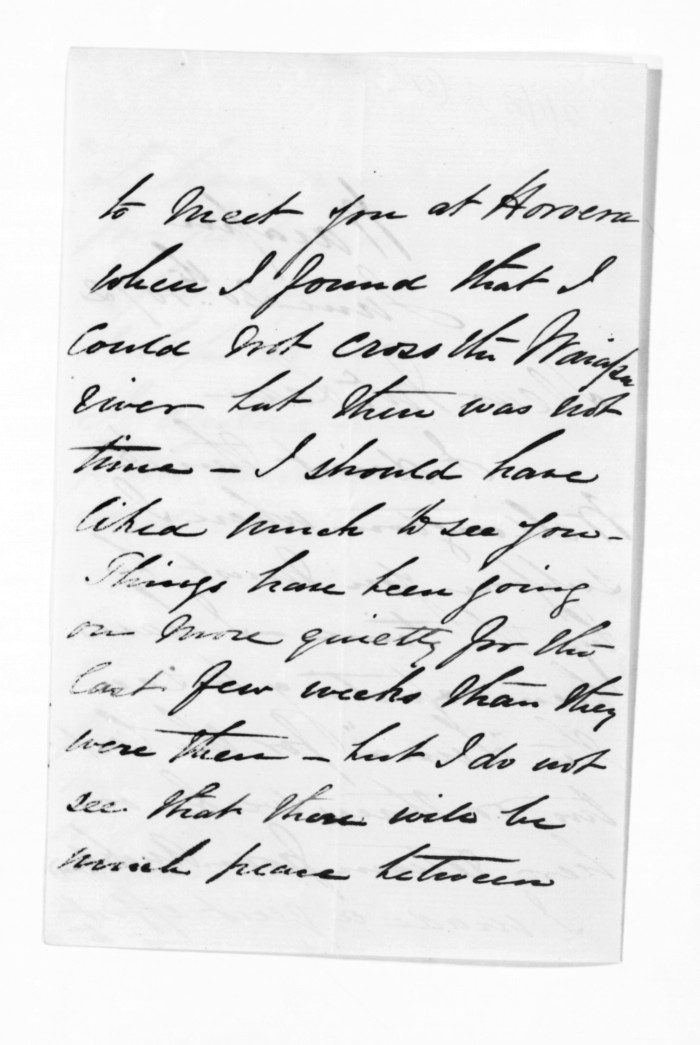 to meet you at Horoera
when I found that I
could not cross the Waiapu
river but there was not
time – I should have
liked much to see you –
Things have been going
on more quietly for the
last few weeks than they
were then – but I do not
see that there will be
much peace between